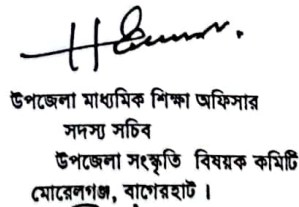 উপজেলা মাধ্যমিক শিক্ষা অফিসার
সদস্য সচিব
উপজেলা সংস্কৃতি বিষয়ক কমিটি
মোরেলগঞ্জ, বাগেরহাট।